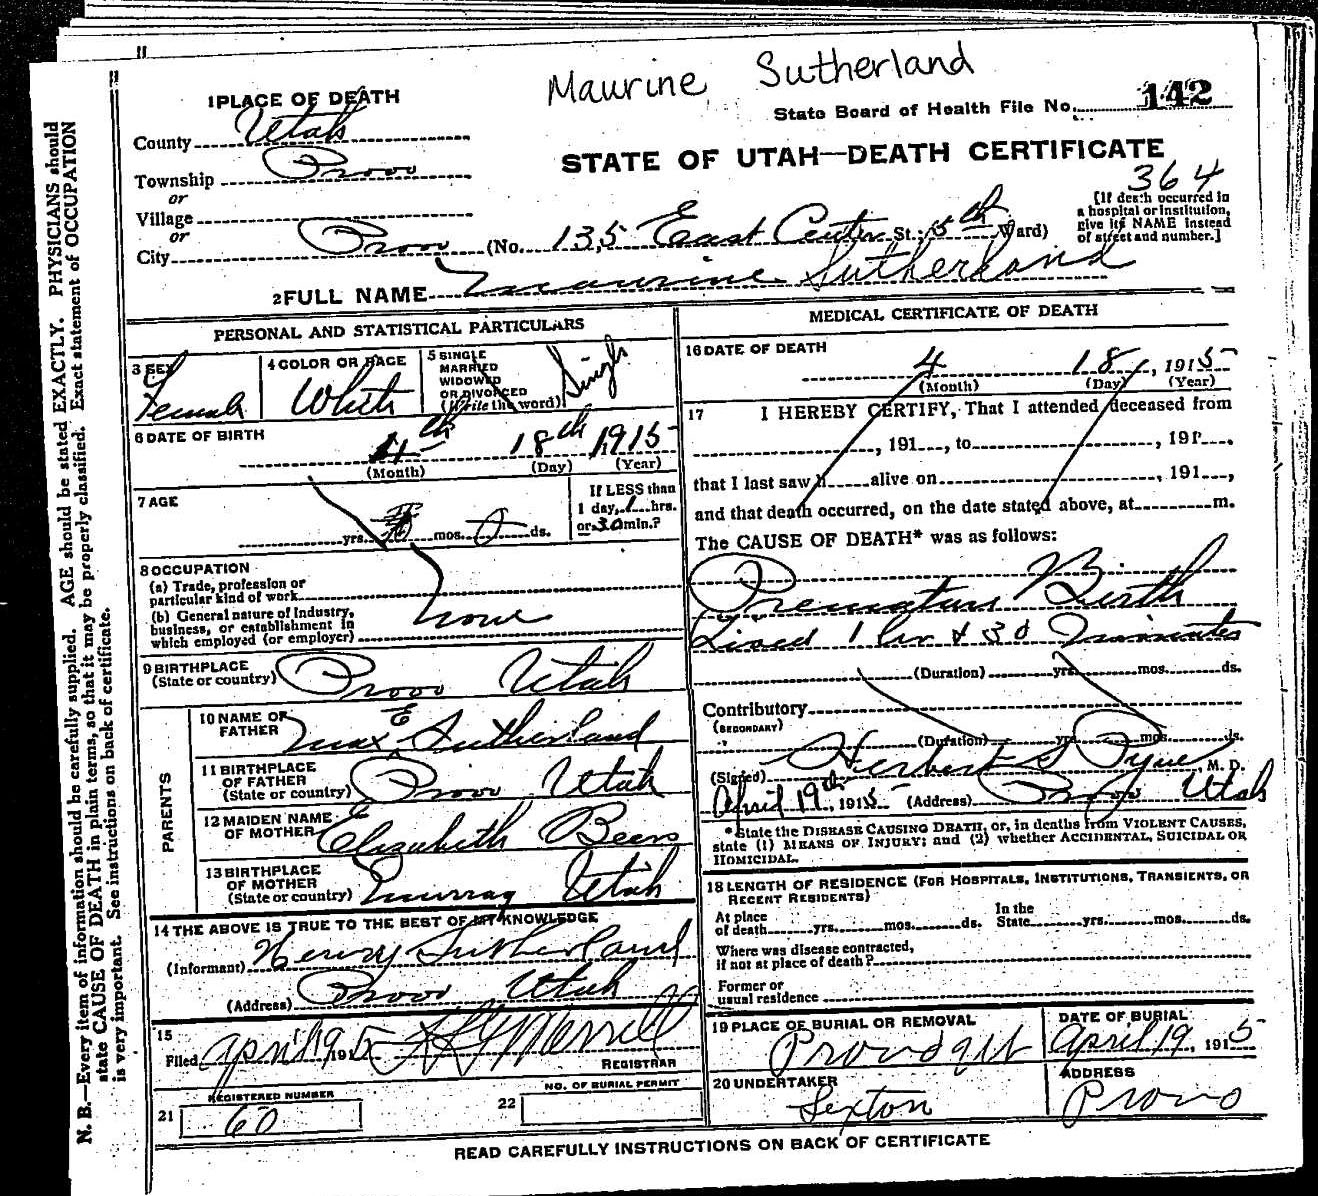 Maurine Sutherland
State Board of Health File No. 142
1 PLACE OF DEATH
County Utah
STATE OF UTAH—DEATH CERTIFICATE
364
Township Provo
or
Village
or
City Provo (No. 135 East Center St.; 5th Ward)
[If death occurred in
a hospital or institution,
give its NAME instead
of street and number.]
2 FULL NAME Maurine Sutherland
PERSONAL AND STATISTICAL PARTICULARS
3 SEX
Female
4 COLOR OR RACE
White
5 SINGLE
MARRIED
WIDOWED
OR DIVORCED
(Write the word)
Single
6 DATE OF BIRTH
4th 18th 1915
(Month) (Day) (Year)
7 AGE
yrs. mos. 0 ds.
If LESS than
1 day, 1 hrs.
or 30 min.?
8 OCCUPATION
(a) Trade, profession or
particular kind of work
(b) General nature of Industry,
business, or establishment in
which employed (or employer)
none
9 BIRTHPLACE
(State or country) Provo Utah
PARENTS
10 NAME OF
FATHER Max E Sutherland
11 BIRTHPLACE
OF FATHER
(State or country) Provo Utah
12 MAIDEN NAME
OF MOTHER Elizabeth Beers
13 BIRTHPLACE
OF MOTHER
(State or country) Murray Utah
14 THE ABOVE IS TRUE TO THE BEST OF MY KNOWLEDGE
(Informant) Henry Sutherland
(Address) Provo Utah
15
Filed April 19 1915 Merrell
REGISTRAR
REGISTERED NUMBER
21 60
NO. OF BURIAL PERMIT
22
MEDICAL CERTIFICATE OF DEATH
16 DATE OF DEATH
4 18, 1915
(Month) (Day) (Year)
17 I HEREBY CERTIFY, That I attended deceased from
, 191 , to , 191 ,
that I last saw h alive on , 191 ,
and that death occurred, on the date stated above, at m.
The CAUSE OF DEATH* was as follows:
Premature Birth
Lived 1 hr & 30 minutes
(Duration) yrs. mos. ds.
Contributory
(SECONDARY)
(Duration) yrs. mos. ds.
(Signed) Herbert S Pyne, M. D.
April 19th, 1915 (Address) Provo Utah
*State the DISEASE CAUSING DEATH, or, in deaths from VIOLENT CAUSES,
state (1) MEANS OF INJURY; and (2) whether ACCIDENTAL, SUICIDAL OR
HOMICIDAL.
18 LENGTH OF RESIDENCE (FOR HOSPITALS, INSTITUTIONS, TRANSIENTS, OR
RECENT RESIDENTS)
At place
of death yrs. mos. ds.
In the
State yrs. mos. ds.
Where was disease contracted,
if not at place of death?
Former or
usual residence
19 PLACE OF BURIAL OR REMOVAL
DATE OF BURIAL
April 19, 1915
20 UNDERTAKER
Sexton
ADDRESS
Provo
READ CAREFULLY INSTRUCTIONS ON BACK OF CERTIFICATE
N. B.—Every item of information should be carefully supplied. AGE should be stated EXACTLY. PHYSICIANS should
state CAUSE OF DEATH in plain terms, so that it may be properly classified. Exact statement of OCCUPATION
is very important. See instructions on back of certificate.